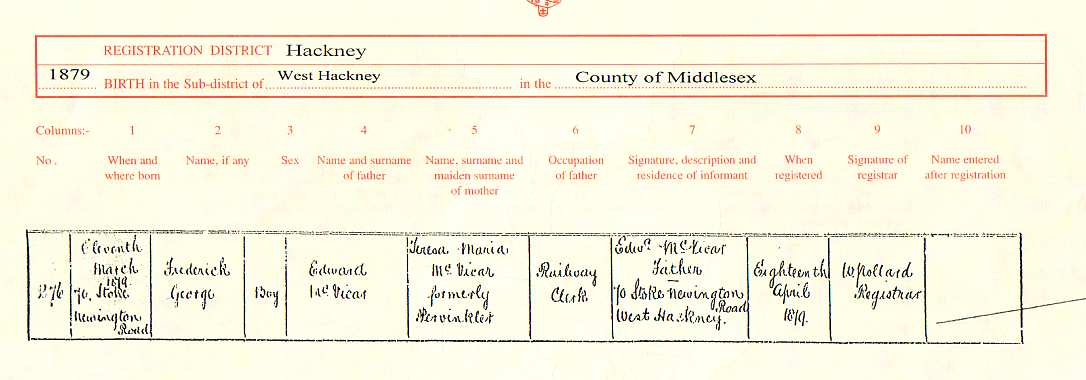 REGISTRATION DISTRICT Hackney
1879 BIRTH in the Sub-district of West Hackney in the County of Middlesex
Columns:- 1 2 3 4 5 6 7 8 9 10
No. When and where born Name, if any Sex Name and surname of father Name, surname and maiden surname of mother Occupation of father Signature, description and residence of informant When registered Signature of registrar Name entered after registration
276
Eleventh
March
1879
70, Stoke
Newington
Road
Frederick
George
Boy
Edward
McVicar
Teresa Maria
McVicar
formerly
Perwinkler
Railway
Clerk
Edwd. McVicar
Father
70 Stoke Newington
Road
West Hackney.
Eighteenth
April
1879.
W Pollard
Registrar